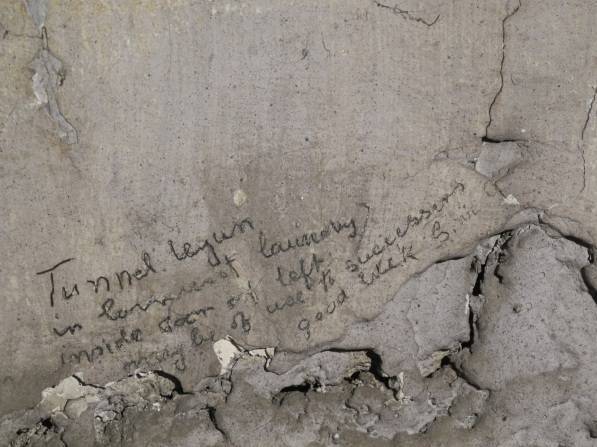 Tunnel begun
in basement of laundry
inside door on left
may be of use to successors
good luck